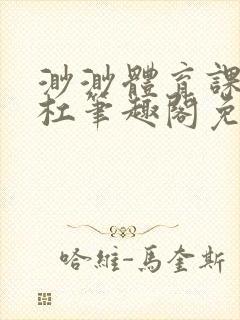 渺渺體育課
杜筆趣閣免
哈維-馬奎斯